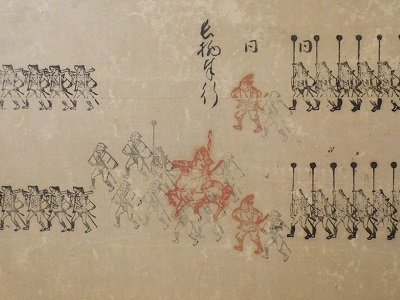 同
同
長柄奉行